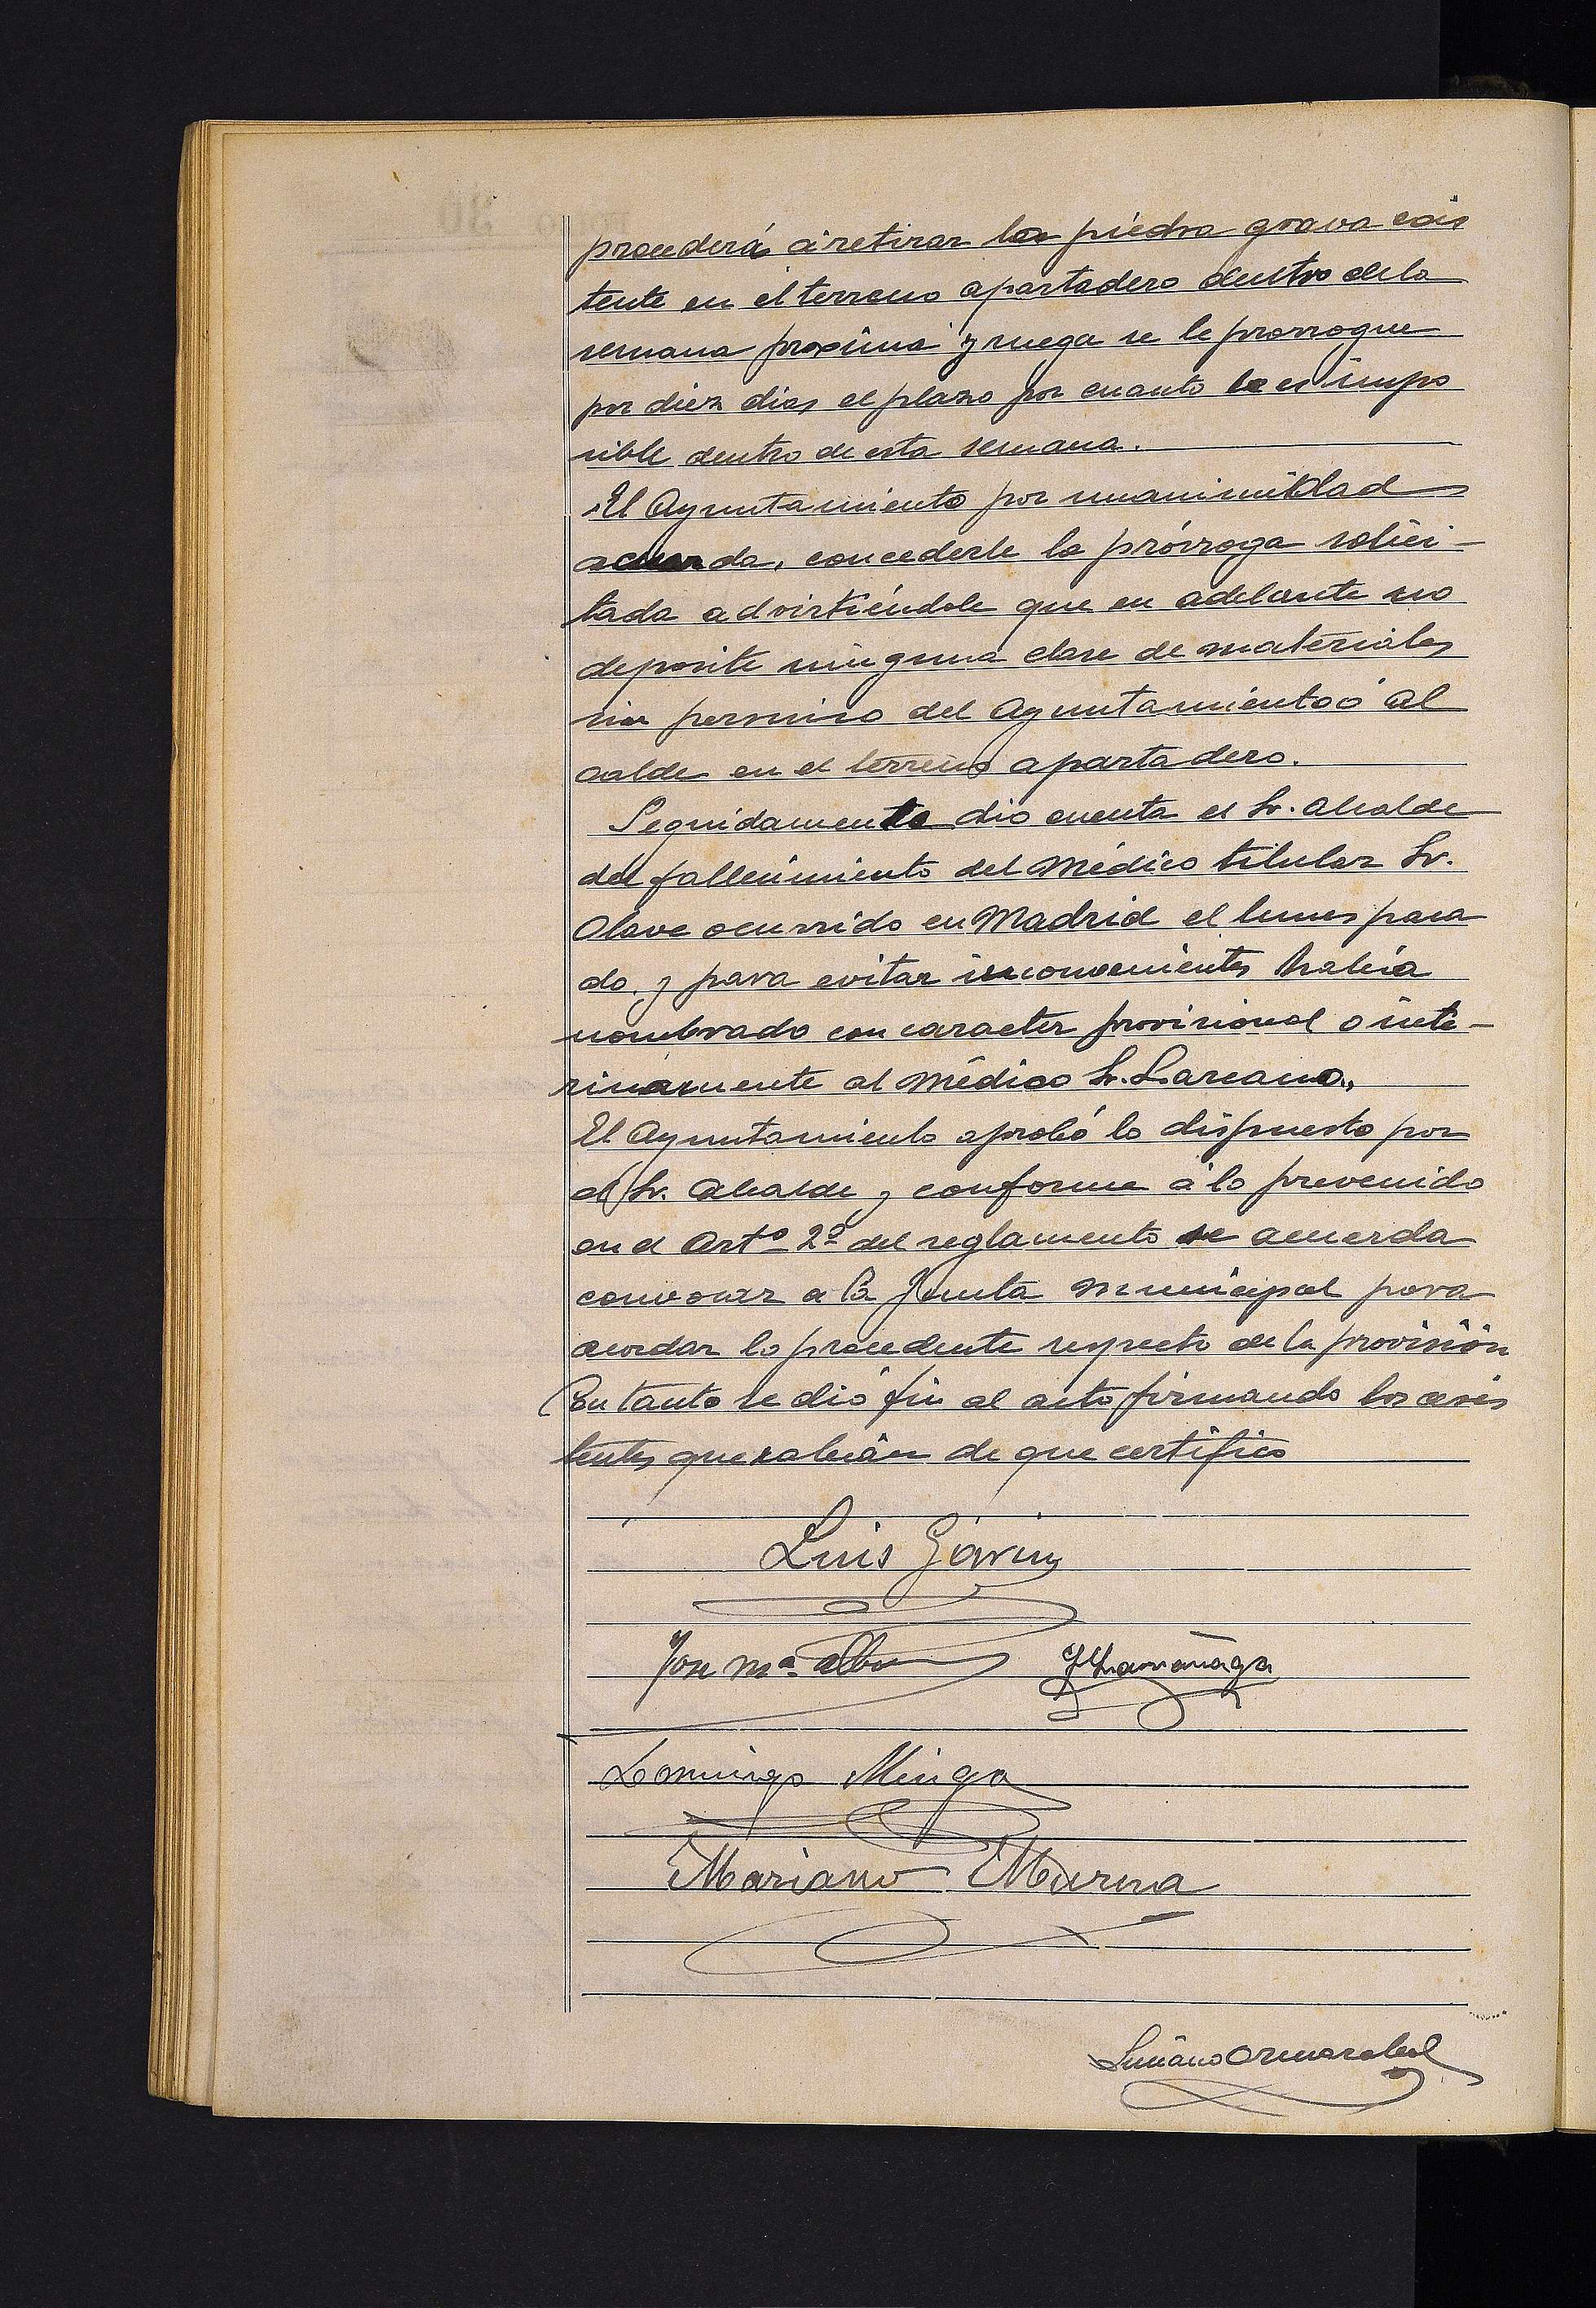 procederá á retirar la piedra grava exis
tente en el terreno apartadero dentro de la
semana proxima y ruega se le prorrogue
por diez dias el plazo por cuanto le es impo
sible dentro de esta semana.
El Ayuntamiento por unanimidad
acuerda, concederle la prórroga solici-
tada advirtiéndole que en adelante no
deposite ninguna clase de materiales
sin permiso del Ayuntamiento ó Al
calde en el terreno apartadero.
Seguidamente dio cuenta el Sr. Alcalde
del fallecimiento del Médico titular Sr.
Olave ocurrido en Madrid el lunes pasa
do, y para evitar inconvenientes había
nombrado con caracter provisional o inte-
rinamente al médico Sr. Larcano,
El Ayuntamiento aprobó lo dispuesto por
el Sr. Alcalde y conforme á lo prevenido
en el Artº 2º del reglamento se acuerda
convocar a la Junta municipal para
acordar lo procedente respecto de la provisión
En tanto se dió fin al acto firmando los asis
tentes que sabían de que certifico
Luis Gávin
Jose Mª
Domingo Minga
Mariano
Luciano Ormazabal